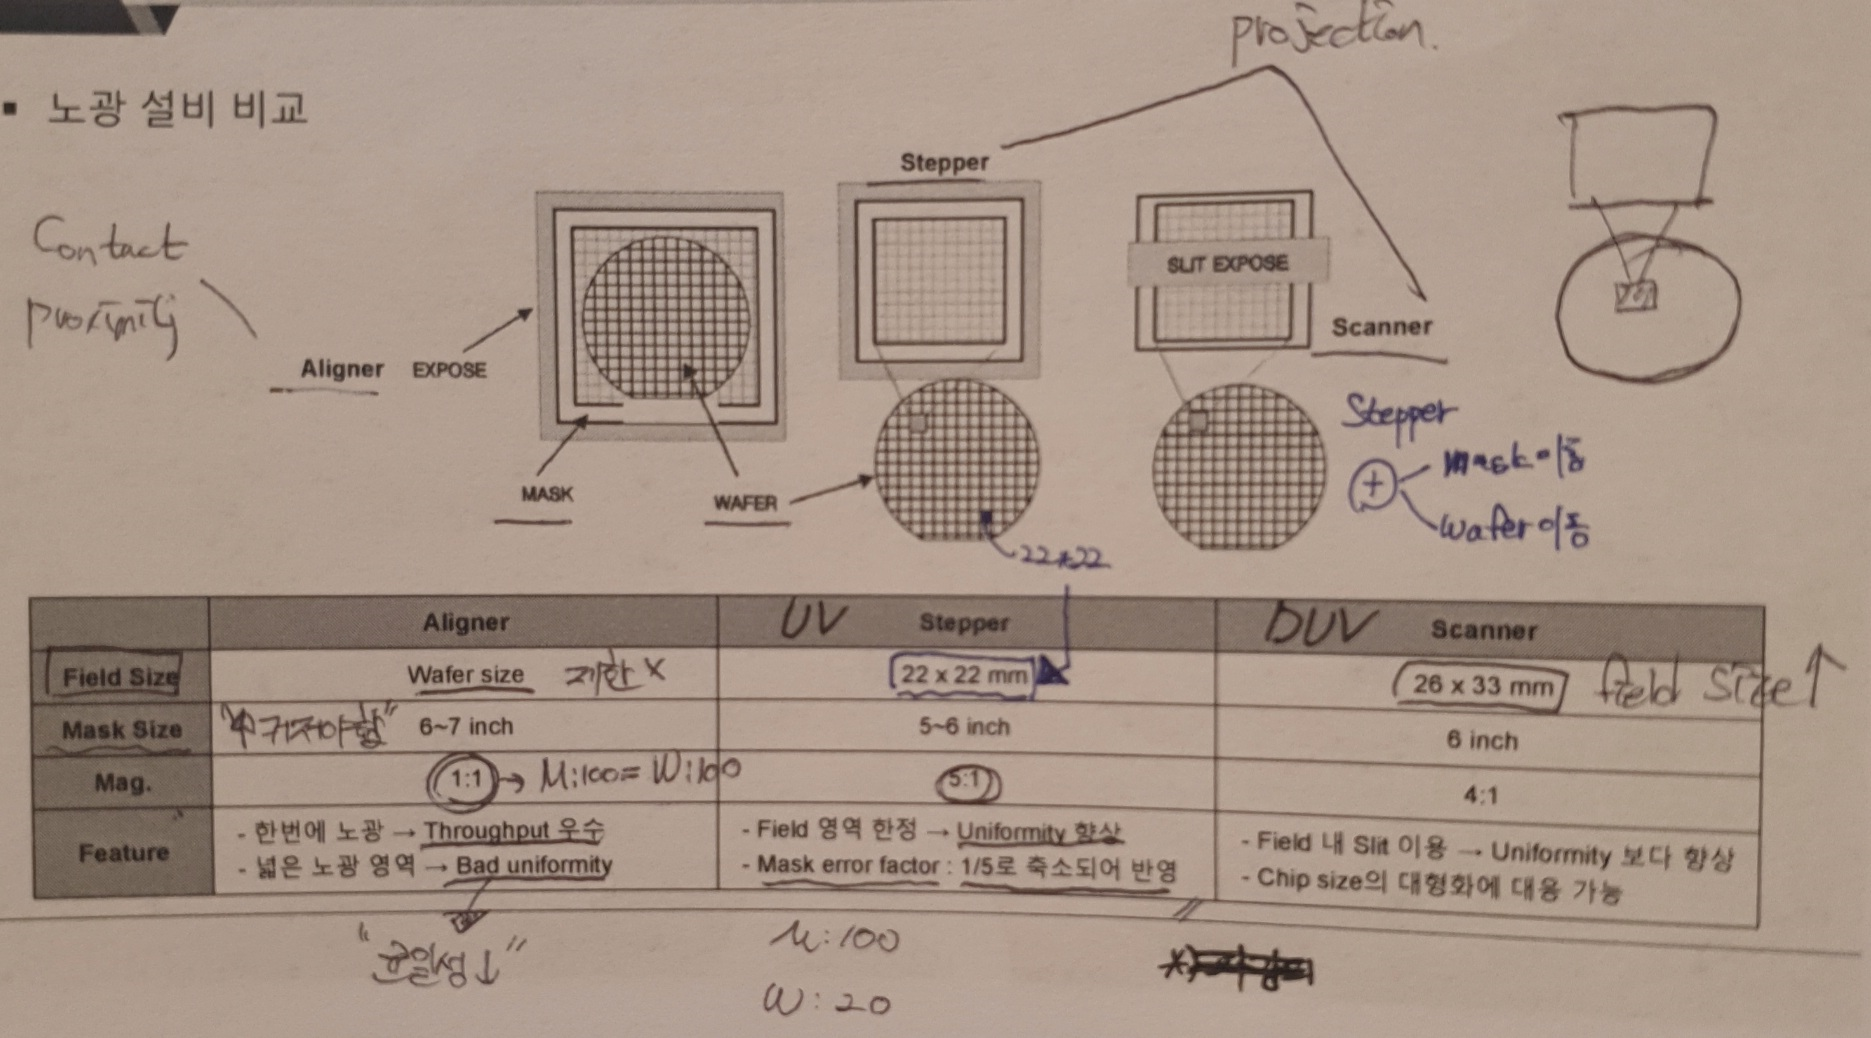 projection.
▪ 노광 설비 비교
Stepper
Contact
proximity
SLIT EXPOSE
Scanner
Aligner EXPOSE
Stepper
+ mask 이동
wafer 이동
MASK
WAFER
22*22
Aligner
UV Stepper
DUV Scanner
Field Size
Wafer size 제한 X
22 x 22 mm
26 x 33 mm field size↑
Mask Size
"↑커져야함" 6~7 inch
5~6 inch
6 inch
Mag.
1:1 → M:100 = W:100
5:1
4:1
Feature
- 한번에 노광 → Throughput 우수
- 넓은 노광 영역 → Bad uniformity
- Field 영역 한정 → Uniformity 향상
- Mask error factor : 1/5로 축소되어 반영
- Field 내 Slit 이용 → Uniformity 보다 향상
- Chip size의 대형화에 대응 가능
"균일성↓"
M:100
W:20